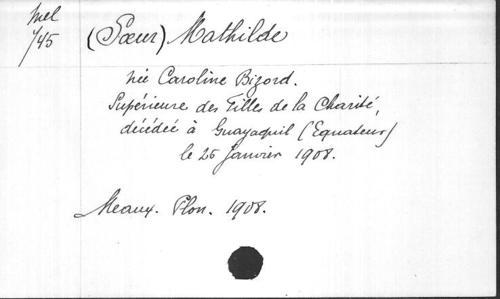 Mel
745
(Sœur) Mathilde
née Caroline Bizord.
Supérieure des Filles de la Charité,
décédée à Guayaquil (Equateur)
le 25 Janvier 1908.
Meaux. Plon. 1908.